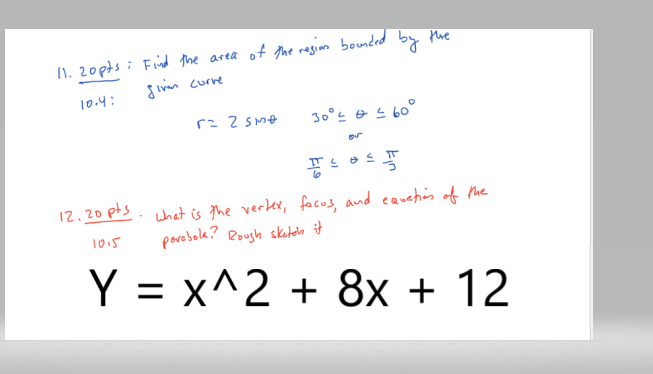 11. 20pts : Find the area of the region bounded by the
10.4: given curve
r = 2 sinθ 30° ≤ θ ≤ 60°
or
π/6 ≤ θ ≤ π/3
12. 20 pts . what is the vertex, focus, and equation of the
10.5 parabola? Rough sketch it
Y = x^2 + 8x + 12